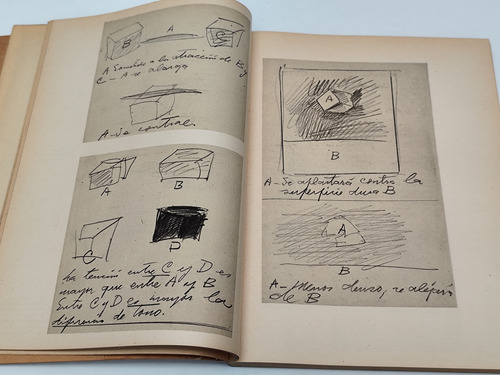 B
A
C
A Sometido a la atracción de B y
C - A se alarga
A - Se contrae.
A
B
C
D
La tensión entre C y D es
mayor que entre A y B
Entre C y D es mayor la
diferencia de tono.
A
B
A - Se aplastará contra la
superficie dura B
A
B
A - Menos denso, se
de B